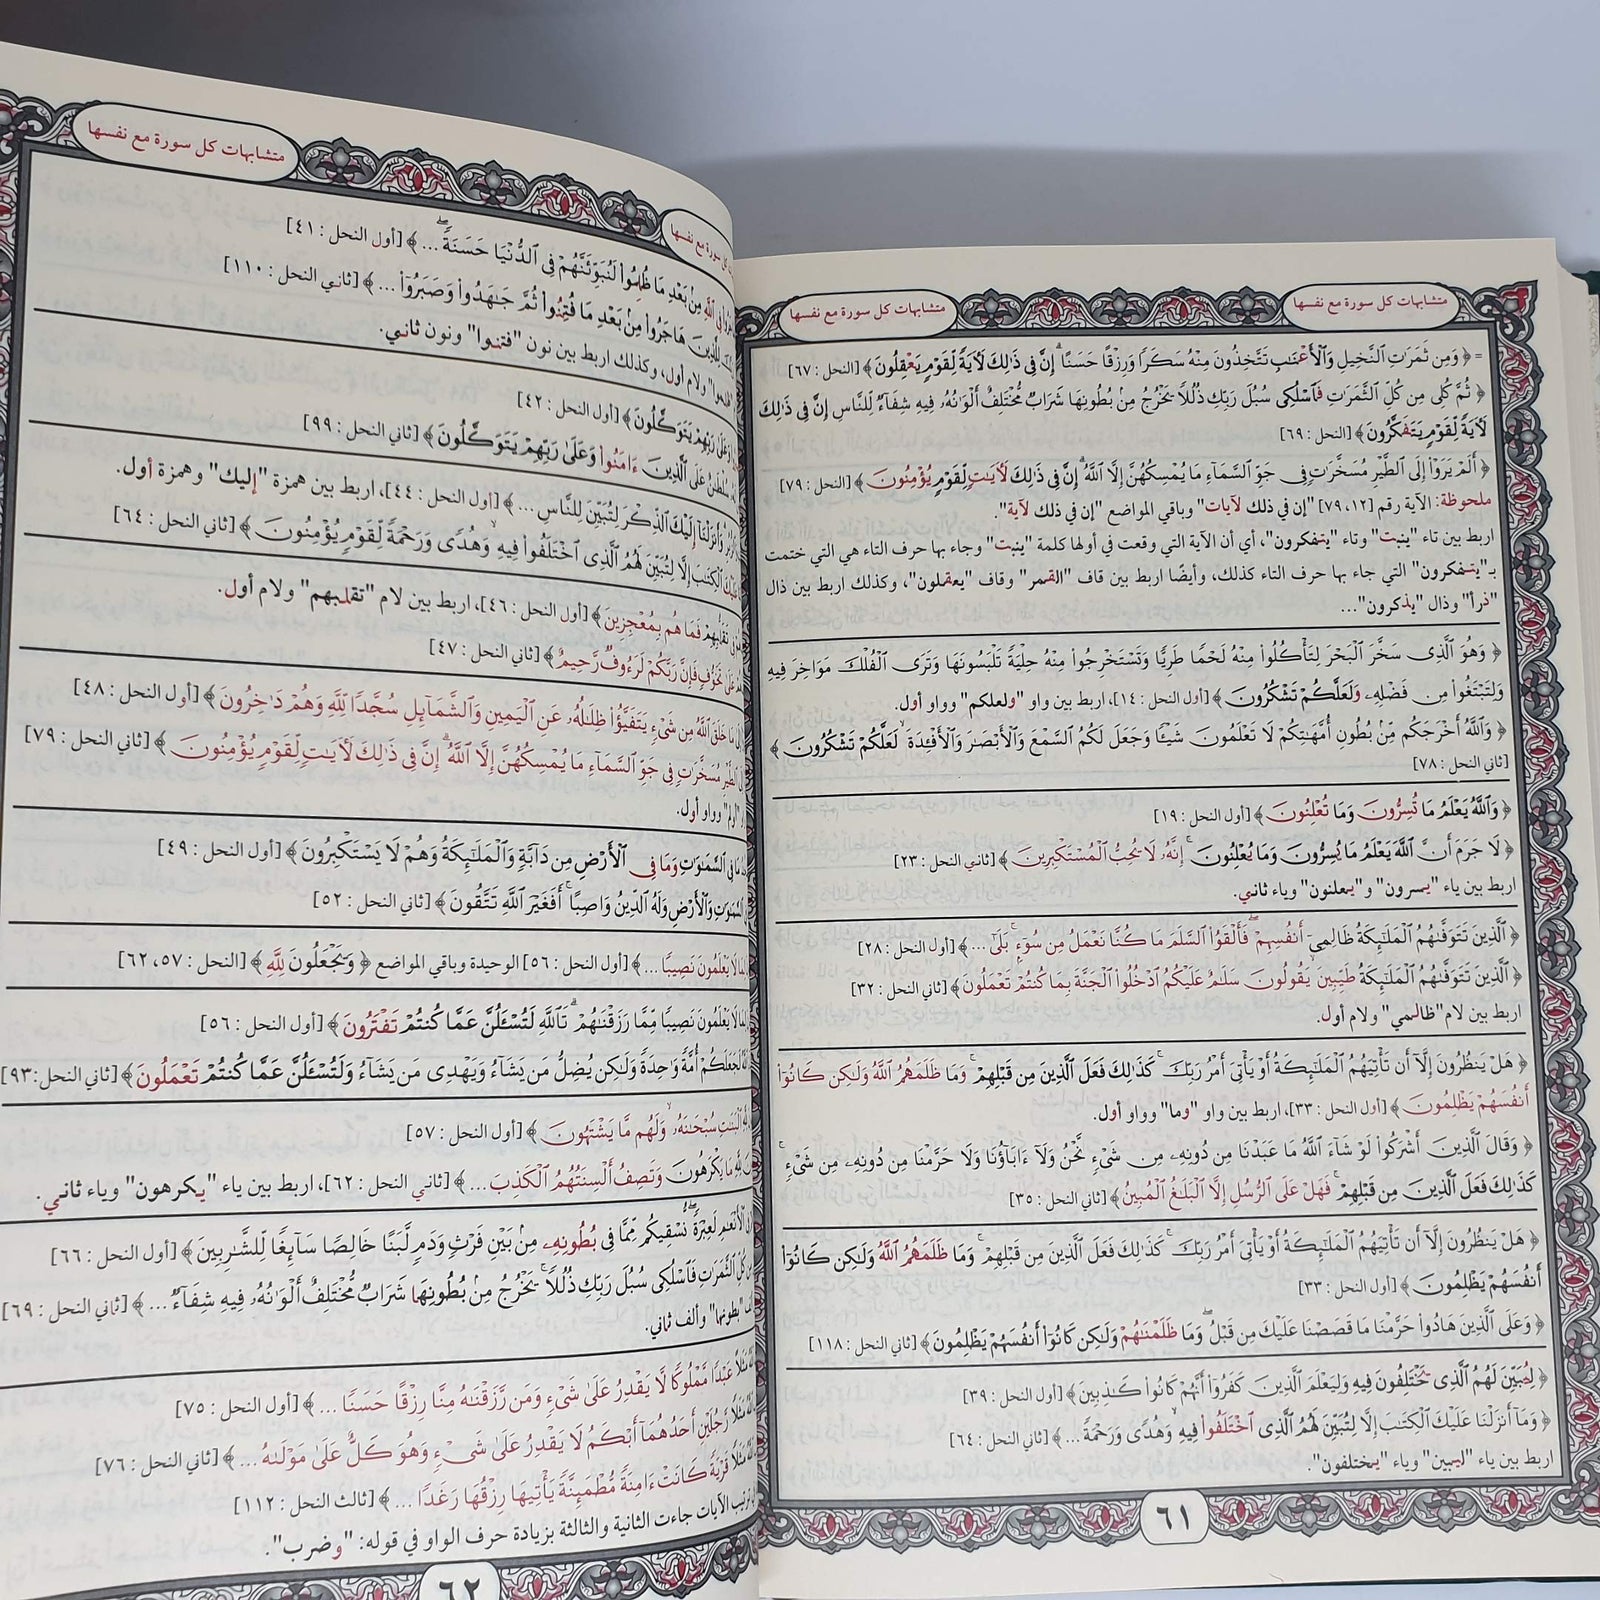 متشابهات كل سورة مع نفسها
متشابهات كل سورة مع نفسها
= ﴿ وَمِن ثَمَرَٰتِ ٱلنَّخِيلِ وَٱلْأَعْنَٰبِ تَتَّخِذُونَ مِنْهُ سَكَرًا وَرِزْقًا حَسَنًا ۗ إِنَّ فِى ذَٰلِكَ لَءَايَةً لِّقَوْمٍ يَعْقِلُونَ ﴾ [النحل : ٦٧]
﴿ ثُمَّ كُلِى مِن كُلِّ ٱلثَّمَرَٰتِ فَٱسْلُكِى سُبُلَ رَبِّكِ ذُلُلًا ۚ يَخْرُجُ مِنۢ بُطُونِهَا شَرَابٌ مُّخْتَلِفٌ أَلْوَٰنُهُۥ فِيهِ شِفَآءٌ لِّلنَّاسِ إِنَّ فِى ذَٰلِكَ
لَءَايَةً لِّقَوْمٍ يَتَفَكَّرُونَ ﴾ [النحل : ٦٩]
﴿ أَلَمْ يَرَوْا۟ إِلَى ٱلطَّيْرِ مُسَخَّرَٰتٍ فِى جَوِّ ٱلسَّمَآءِ مَا يُمْسِكُهُنَّ إِلَّا ٱللَّهُ ۗ إِنَّ فِى ذَٰلِكَ لَءَايَٰتٍ لِّقَوْمٍ يُؤْمِنُونَ ﴾ [النحل : ٧٩]
ملحوظة: الآية رقم [١٢، ٧٩] "إن في ذلك لآيات" وباقي المواضع "إن في ذلك لآية".
اربط بين تاء "ينبت" وتاء "يتفكرون"، أي أن الآية التي وقعت في أولها كلمة "ينبت" وجاء بها حرف التاء هي التي ختمت
بـ"يتفكرون" التي جاء بها حرف التاء كذلك، وأيضًا اربط بين قاف "القمر" وقاف "يعقلون"، وكذلك اربط بين ذال
"ذرأ" وذال "يذكرون"...
﴿ وَهُوَ ٱلَّذِى سَخَّرَ ٱلْبَحْرَ لِتَأْكُلُوا۟ مِنْهُ لَحْمًا طَرِيًّا وَتَسْتَخْرِجُوا۟ مِنْهُ حِلْيَةً تَلْبَسُونَهَا وَتَرَى ٱلْفُلْكَ مَوَاخِرَ فِيهِ
وَلِتَبْتَغُوا۟ مِن فَضْلِهِۦ وَلَعَلَّكُمْ تَشْكُرُونَ ﴾ [أول النحل : ١٤]، اربط بين واو "ولعلكم" وواو أول.
﴿ وَٱللَّهُ أَخْرَجَكُم مِّنۢ بُطُونِ أُمَّهَٰتِكُمْ لَا تَعْلَمُونَ شَيْـًٔا وَجَعَلَ لَكُمُ ٱلسَّمْعَ وَٱلْأَبْصَٰرَ وَٱلْأَفْـِٔدَةَ ۙ لَعَلَّكُمْ تَشْكُرُونَ ﴾
[ثاني النحل : ٧٨]
﴿ وَٱللَّهُ يَعْلَمُ مَا تُسِرُّونَ وَمَا تُعْلِنُونَ ﴾ [أول النحل : ١٩]
﴿ لَا جَرَمَ أَنَّ ٱللَّهَ يَعْلَمُ مَا يُسِرُّونَ وَمَا يُعْلِنُونَ ۚ إِنَّهُۥ لَا يُحِبُّ ٱلْمُسْتَكْبِرِينَ ﴾ [ثاني النحل : ٢٣]
اربط بين ياء "يسرون" و"يعلنون" وياء ثاني.
﴿ ٱلَّذِينَ تَتَوَفَّىٰهُمُ ٱلْمَلَٰٓئِكَةُ ظَالِمِىٓ أَنفُسِهِمْ ۖ فَأَلْقَوُا۟ ٱلسَّلَمَ مَا كُنَّا نَعْمَلُ مِن سُوٓءٍۭ ۚ بَلَىٰٓ ... ﴾ [أول النحل : ٢٨]
﴿ ٱلَّذِينَ تَتَوَفَّىٰهُمُ ٱلْمَلَٰٓئِكَةُ طَيِّبِينَ ۙ يَقُولُونَ سَلَٰمٌ عَلَيْكُمُ ٱدْخُلُوا۟ ٱلْجَنَّةَ بِمَا كُنتُمْ تَعْمَلُونَ ﴾ [ثاني النحل : ٣٢]
اربط بين لام"ظالمي" ولام أول.
﴿ هَلْ يَنظُرُونَ إِلَّآ أَن تَأْتِيَهُمُ ٱلْمَلَٰٓئِكَةُ أَوْ يَأْتِىَ أَمْرُ رَبِّكَ ۚ كَذَٰلِكَ فَعَلَ ٱلَّذِينَ مِن قَبْلِهِمْ ۚ وَمَا ظَلَمَهُمُ ٱللَّهُ وَلَٰكِن كَانُوٓا۟
أَنفُسَهُمْ يَظْلِمُونَ ﴾ [أول النحل : ٣٣]، اربط بين واو "وما" وواو أول.
﴿ وَقَالَ ٱلَّذِينَ أَشْرَكُوا۟ لَوْ شَآءَ ٱللَّهُ مَا عَبَدْنَا مِن دُونِهِۦ مِن شَىْءٍ نَّحْنُ وَلَآ ءَابَآؤُنَا وَلَا حَرَّمْنَا مِن دُونِهِۦ مِن شَىْءٍ ۚ
كَذَٰلِكَ فَعَلَ ٱلَّذِينَ مِن قَبْلِهِمْ ۚ فَهَلْ عَلَى ٱلرُّسُلِ إِلَّا ٱلْبَلَٰغُ ٱلْمُبِينُ ﴾ [ثاني النحل : ٣٥]
﴿ هَلْ يَنظُرُونَ إِلَّآ أَن تَأْتِيَهُمُ ٱلْمَلَٰٓئِكَةُ أَوْ يَأْتِىَ أَمْرُ رَبِّكَ ۚ كَذَٰلِكَ فَعَلَ ٱلَّذِينَ مِن قَبْلِهِمْ ۚ وَمَا ظَلَمَهُمُ ٱللَّهُ وَلَٰكِن كَانُوٓا۟
أَنفُسَهُمْ يَظْلِمُونَ ﴾ [أول النحل : ٣٣]
﴿ وَعَلَى ٱلَّذِينَ هَادُوا۟ حَرَّمْنَا مَا قَصَصْنَا عَلَيْكَ مِن قَبْلُ ۖ وَمَا ظَلَمْنَٰهُمْ وَلَٰكِن كَانُوٓا۟ أَنفُسَهُمْ يَظْلِمُونَ ﴾ [ثاني النحل : ١١٨]
﴿ لِيُبَيِّنَ لَهُمُ ٱلَّذِى يَخْتَلِفُونَ فِيهِ وَلِيَعْلَمَ ٱلَّذِينَ كَفَرُوٓا۟ أَنَّهُمْ كَانُوا۟ كَٰذِبِينَ ﴾ [أول النحل : ٣٩]
﴿ وَمَآ أَنزَلْنَا عَلَيْكَ ٱلْكِتَٰبَ إِلَّا لِتُبَيِّنَ لَهُمُ ٱلَّذِى ٱخْتَلَفُوا۟ فِيهِ ۙ وَهُدًى وَرَحْمَةً ... ﴾ [ثاني النحل : ٦٤]
اربط بين ياء "ليبين" وياء "يختلفون".
٦١
متشابهات كل سورة مع نفسها
كل سورة مع نفسها
فِى ٱللَّهِ مِنۢ بَعْدِ مَا ظُلِمُوا۟ لَنُبَوِّئَنَّهُمْ فِى ٱلدُّنْيَا حَسَنَةً ۖ ... ﴾ [أول النحل : ٤١]
لِلَّذِينَ هَاجَرُوا۟ مِنۢ بَعْدِ مَا فُتِنُوا۟ ثُمَّ جَٰهَدُوا۟ وَصَبَرُوٓا۟ ... ﴾ [ثاني النحل : ١١٠]
ولام أول، وكذلك اربط بين نون "فتنوا" ونون ثاني.
وَعَلَىٰ رَبِّهِمْ يَتَوَكَّلُونَ ﴾ [أول النحل : ٤٢]
عَلَى ٱلَّذِينَ ءَامَنُوا۟ وَعَلَىٰ رَبِّهِمْ يَتَوَكَّلُونَ ﴾ [ثاني النحل : ٩٩]
وَأَنزَلْنَآ إِلَيْكَ ٱلذِّكْرَ لِتُبَيِّنَ لِلنَّاسِ ... ﴾ [أول النحل : ٤٤]، اربط بين همزة "إليك" وهمزة أول.
ٱلْكِتَٰبَ إِلَّا لِتُبَيِّنَ لَهُمُ ٱلَّذِى ٱخْتَلَفُوا۟ فِيهِ ۙ وَهُدًى وَرَحْمَةً لِّقَوْمٍ يُؤْمِنُونَ ﴾ [ثاني النحل : ٦٤]
فِى تَقَلُّبِهِمْ فَمَا هُم بِمُعْجِزِينَ ﴾ [أول النحل : ٤٦]، اربط بين لام "تقلبهم" ولام أول.
عَلَىٰ تَخَوُّفٍ فَإِنَّ رَبَّكُمْ لَرَءُوفٌ رَّحِيمٌ ﴾ [ثاني النحل : ٤٧]
مَا خَلَقَ ٱللَّهُ مِن شَىْءٍ يَتَفَيَّؤُا۟ ظِلَٰلُهُۥ عَنِ ٱلْيَمِينِ وَٱلشَّمَآئِلِ سُجَّدًا لِّلَّهِ وَهُمْ دَٰخِرُونَ ﴾ [أول النحل : ٤٨]
ٱلطَّيْرِ مُسَخَّرَٰتٍ فِى جَوِّ ٱلسَّمَآءِ مَا يُمْسِكُهُنَّ إِلَّا ٱللَّهُ ۗ إِنَّ فِى ذَٰلِكَ لَءَايَٰتٍ لِّقَوْمٍ يُؤْمِنُونَ ﴾ [ثاني النحل : ٧٩]
"أولم" وواو أول.
مَا فِى ٱلسَّمَٰوَٰتِ وَمَا فِى ٱلْأَرْضِ مِن دَآبَّةٍ وَٱلْمَلَٰٓئِكَةُ وَهُمْ لَا يَسْتَكْبِرُونَ ﴾ [أول النحل : ٤٩]
ٱلسَّمَٰوَٰتِ وَٱلْأَرْضِ وَلَهُ ٱلدِّينُ وَاصِبًا ۚ أَفَغَيْرَ ٱللَّهِ تَتَّقُونَ ﴾ [ثاني النحل : ٥٢]
لِمَا لَا يَعْلَمُونَ نَصِيبًا ... ﴾ [أول النحل : ٥٦] الوحيدة وباقي المواضع ﴿ وَيَجْعَلُونَ لِلَّهِ ﴾ [النحل : ٥٧، ٦٢]
لِمَا لَا يَعْلَمُونَ نَصِيبًا مِّمَّا رَزَقْنَٰهُمْ ۗ تَٱللَّهِ لَتُسْـَٔلُنَّ عَمَّا كُنتُمْ تَفْتَرُونَ ﴾ [أول النحل : ٥٦]
لَجَعَلَكُمْ أُمَّةً وَٰحِدَةً وَلَٰكِن يُضِلُّ مَن يَشَآءُ وَيَهْدِى مَن يَشَآءُ ۚ وَلَتُسْـَٔلُنَّ عَمَّا كُنتُمْ تَعْمَلُونَ ﴾ [ثاني النحل: ٩٣]
ٱلْبَنَٰتِ سُبْحَٰنَهُۥ ۙ وَلَهُم مَّا يَشْتَهُونَ ﴾ [أول النحل : ٥٧]
لِلَّهِ مَا يَكْرَهُونَ وَتَصِفُ أَلْسِنَتُهُمُ ٱلْكَذِبَ ... ﴾ [ثاني النحل : ٦٢]، اربط بين ياء "يكرهون" وياء ثاني.
فِى ٱلْأَنْعَٰمِ لَعِبْرَةً ۖ نُّسْقِيكُم مِّمَّا فِى بُطُونِهِۦ مِنۢ بَيْنِ فَرْثٍ وَدَمٍ لَّبَنًا خَالِصًا سَآئِغًا لِّلشَّٰرِبِينَ ﴾ [أول النحل : ٦٦]
مِن كُلِّ ٱلثَّمَرَٰتِ فَٱسْلُكِى سُبُلَ رَبِّكِ ذُلُلًا ۚ يَخْرُجُ مِنۢ بُطُونِهَا شَرَابٌ مُّخْتَلِفٌ أَلْوَٰنُهُۥ فِيهِ شِفَآءٌ ... ﴾ [ثاني النحل : ٦٩]
"بطونها" وألف ثاني.
مَثَلًا عَبْدًا مَّمْلُوكًا لَّا يَقْدِرُ عَلَىٰ شَىْءٍ وَمَن رَّزَقْنَٰهُ مِنَّا رِزْقًا حَسَنًا ... ﴾ [أول النحل : ٧٥]
مَثَلًا رَّجُلَيْنِ أَحَدُهُمَآ أَبْكَمُ لَا يَقْدِرُ عَلَىٰ شَىْءٍ وَهُوَ كَلٌّ عَلَىٰ مَوْلَىٰهُ ... ﴾ [ثاني النحل : ٧٦]
مَثَلًا قَرْيَةً كَانَتْ ءَامِنَةً مُّطْمَئِنَّةً يَأْتِيهَا رِزْقُهَا رَغَدًا ... ﴾ [ثالث النحل : ١١٢]
ترتيب الآيات جاءت الثانية والثالثة بزيادة حرف الواو في قوله: "وضرب".
٦٢